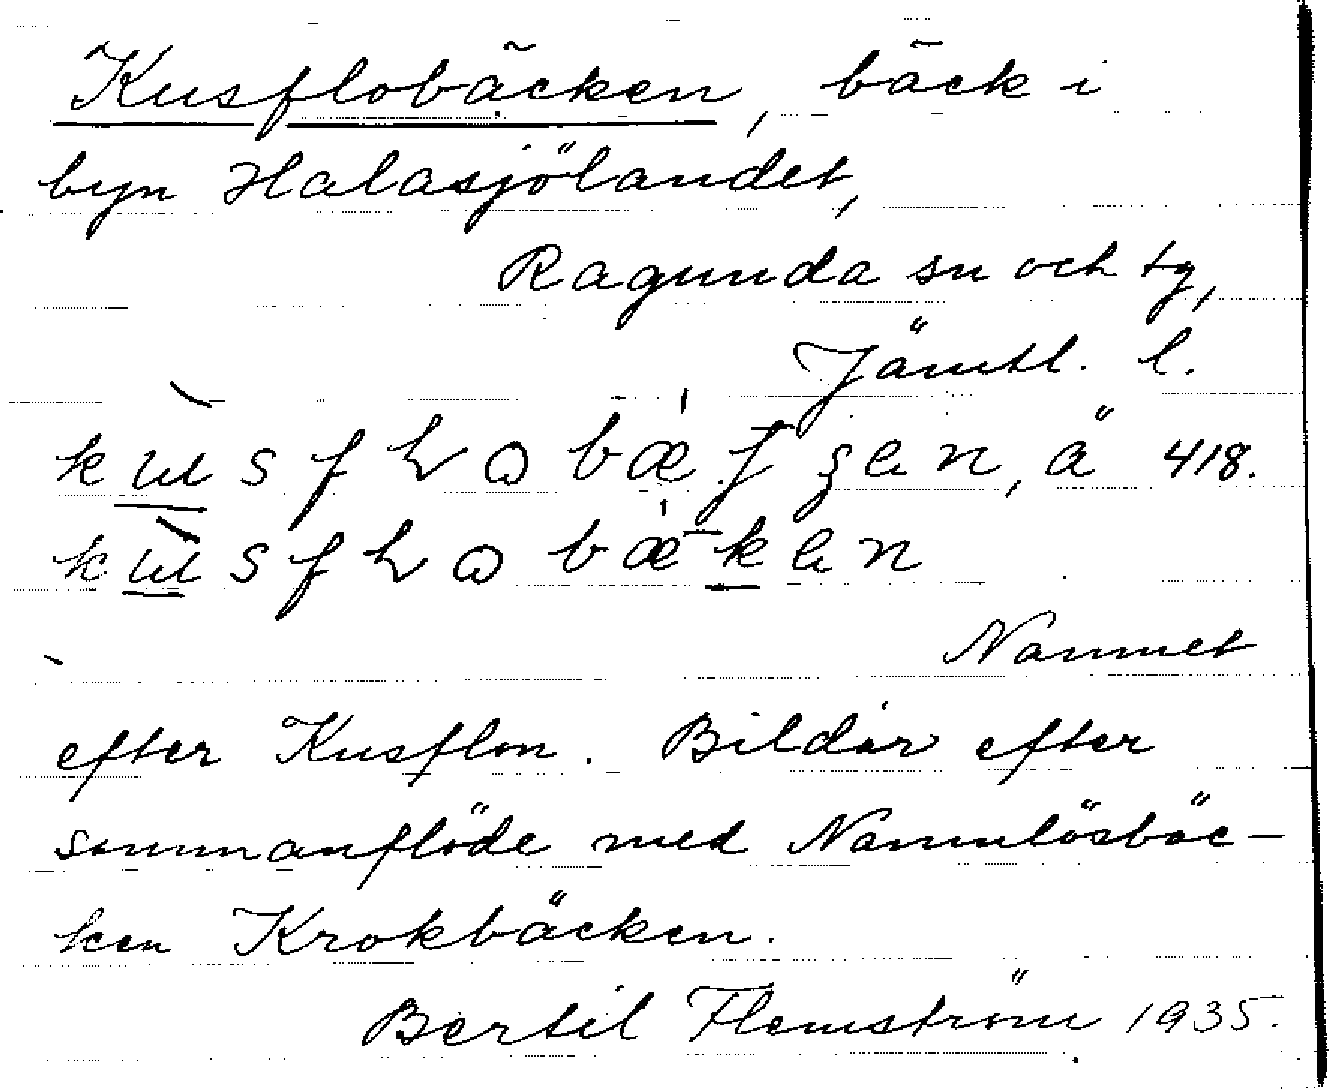 Kusflobäcken, bäck i
byn Halasjölandet,
Ragunda sn och tg,
Jämtl. l.
ä 418.
Namnet
efter Kusflon. Bildar efter
sammanflöde med Namnlösbäc-
ken Krokbäcken.
Bertil Flemström 1935.